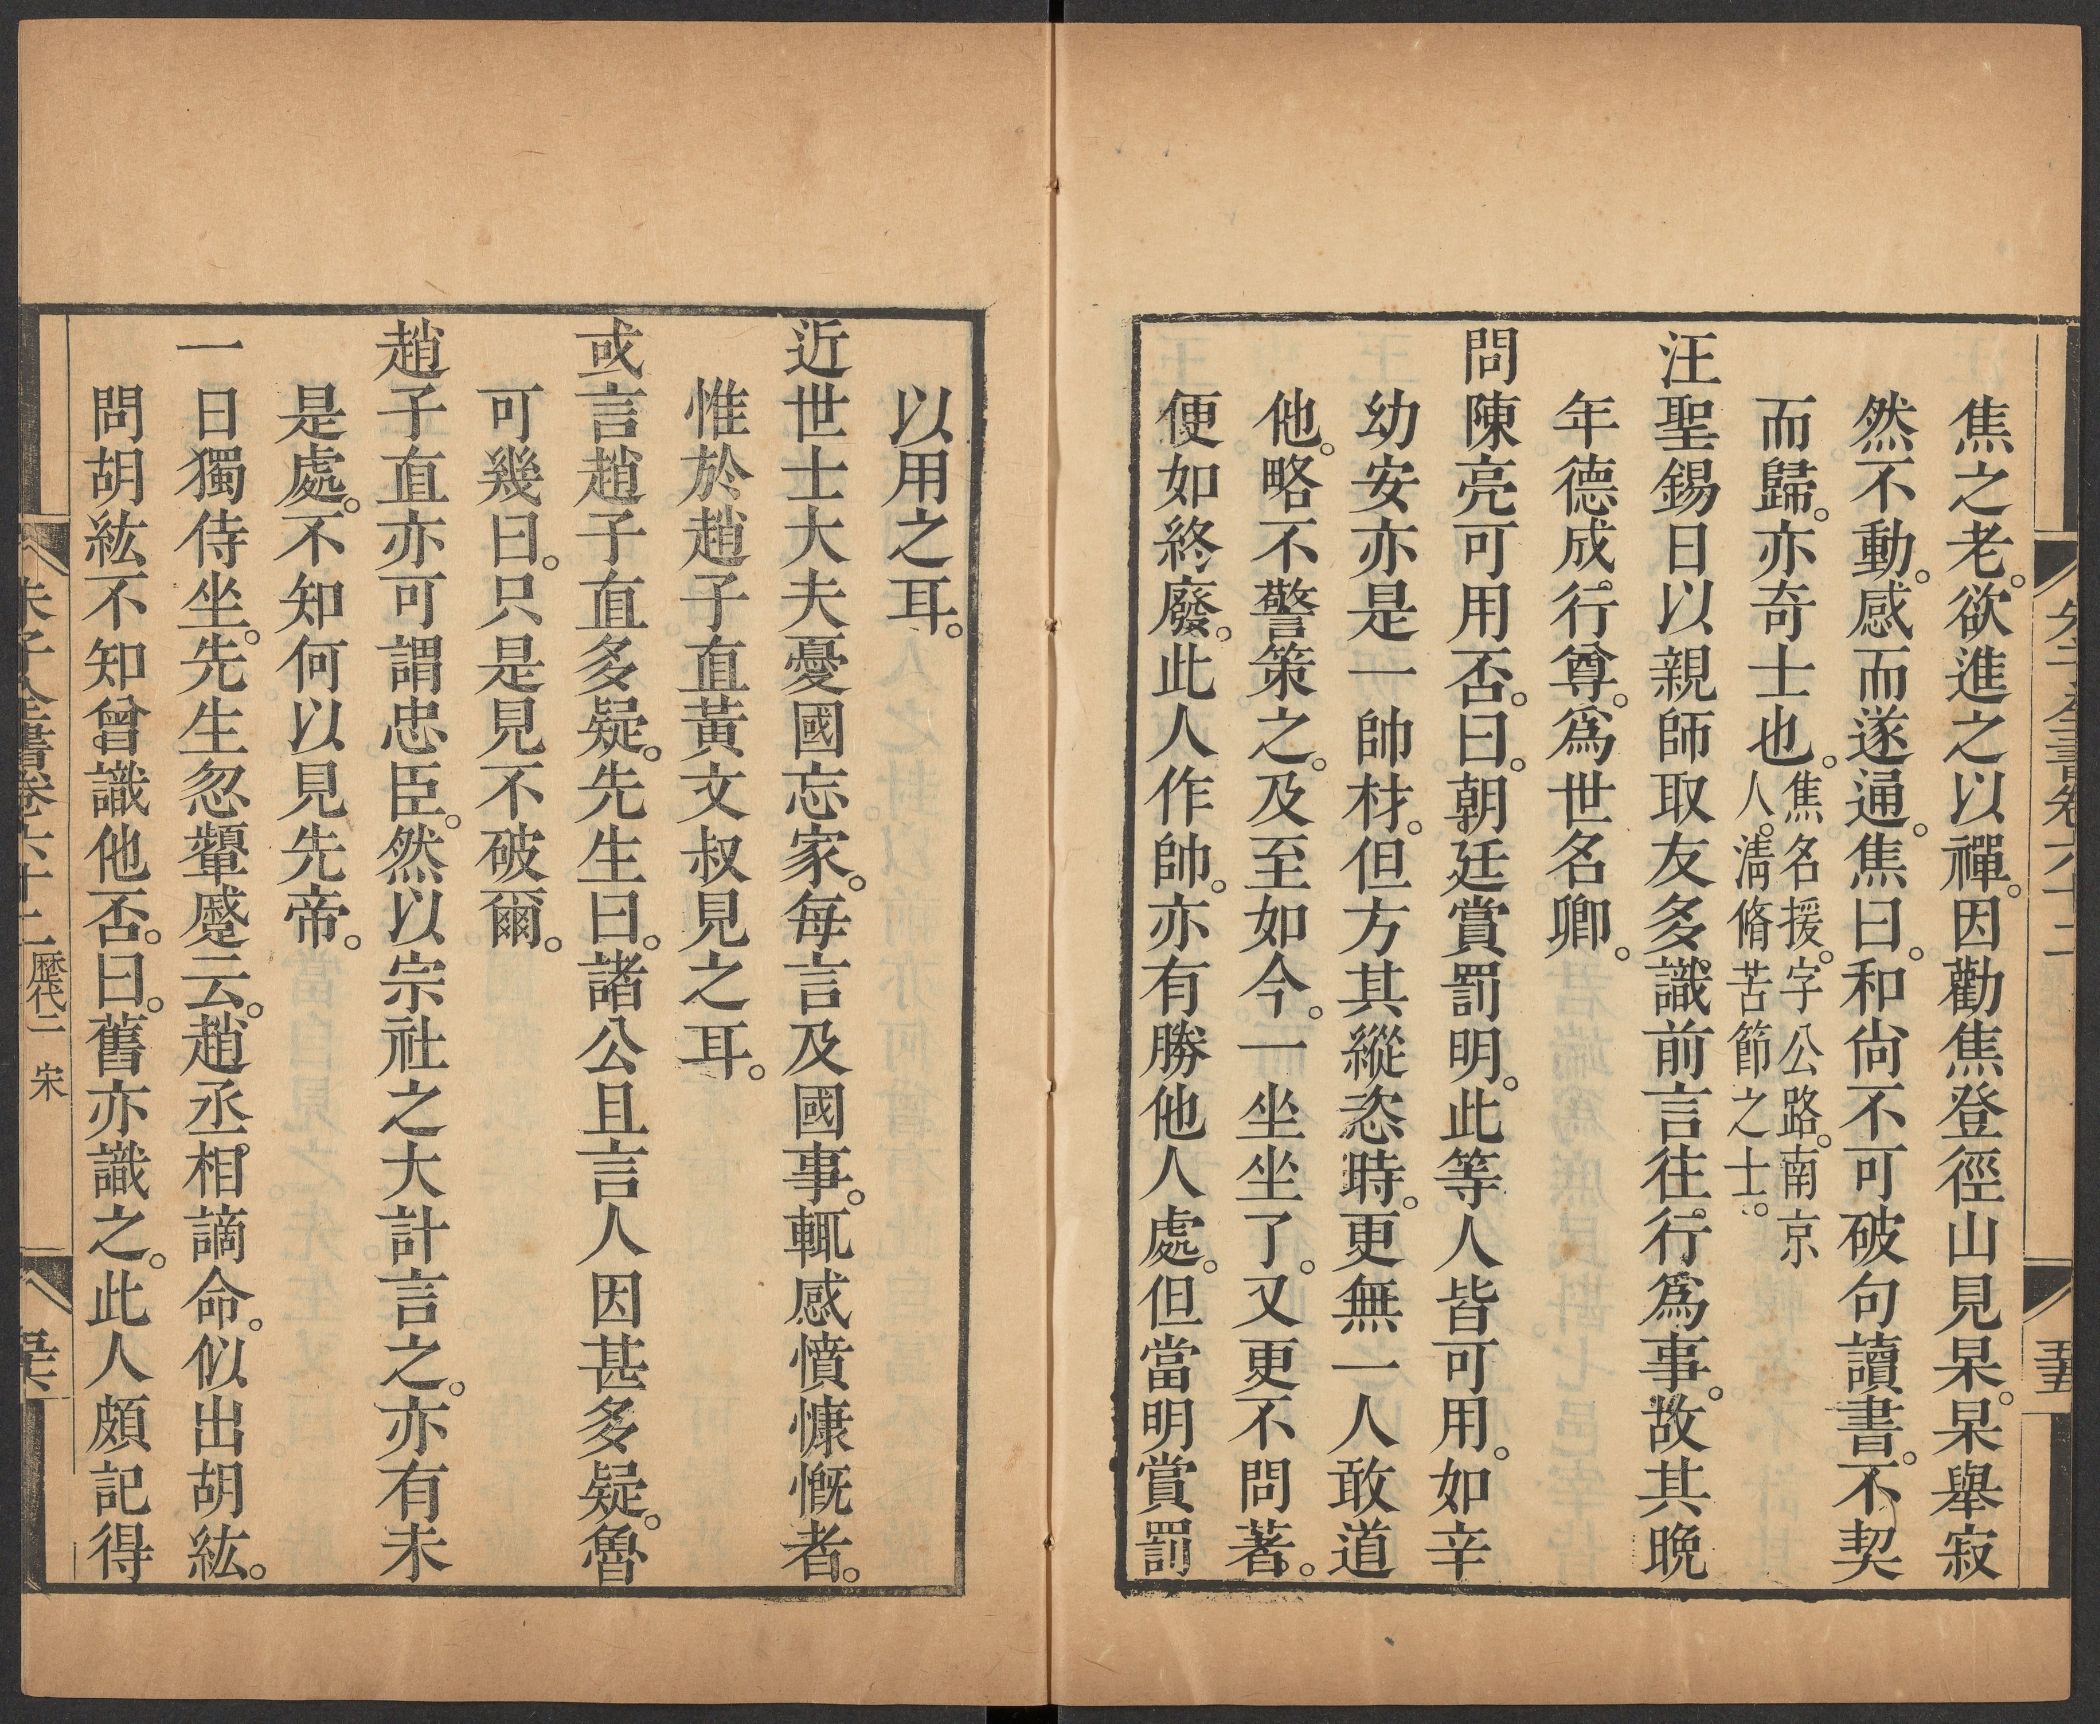 焦之老。欲進之以禪。因勸焦登徑山見杲。杲舉寂
然不動。感而遂通。焦曰。和尙不可破句讀書。不契
而歸。亦奇士也。焦名援。字公路。南京
人。淸脩苦節之士。
汪聖錫日以親師取友多識前言往行爲事。故其晚
年德成行尊。爲世名卿。
問陳亮可用否。曰。朝廷賞罰明。此等人皆可用。如辛
幼安亦是一帥材。但方其縱恣時。更無一人敢道
他。略不警策之。及至如今。一坐坐了。又更不問著。
便如終廢。此人作帥。亦有勝他人處。但當明賞罰
以用之耳。
近世士大夫憂國忘家。每言及國事。輒感憤慷慨者。
惟於趙子直黃文叔見之耳。
或言趙子直多疑。先生曰。諸公且言人因甚多疑。魯
可幾曰。只是見不破爾。
趙子直亦可謂忠臣。然以宗社之大計言之。亦有未
是處。不知何以見先帝。
一日獨侍坐。先生忽顰蹙云。趙丞相謫命。似出胡紘。
問胡紘不知曾識他否。曰。舊亦識之。此人頗記得
朱子全書卷六十二 歷代二 宋